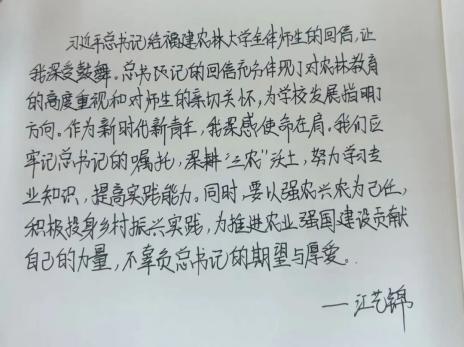 习近平总书记给福建农林大学全体师生的回信，让
我深受鼓舞。总书记的回信充分体现了对农林教育
的高度重视和对师生的亲切关怀，为学校发展指明了
方向。作为新时代新青年，我深感使命在肩。我们应
牢记总书记的嘱托，深耕“三农”沃土，努力学习专
业知识，提高实践能力。同时，要以强农兴农为己任，
积极投身乡村振兴实践，为推进农业强国建设贡献
自己的力量，不辜负总书记的期望与厚爱。
——江艺锦